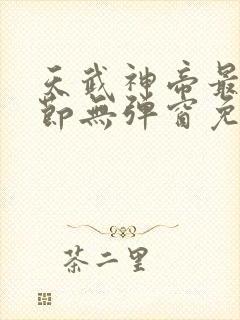 天武神帝最
節無彈窗免
茶二里